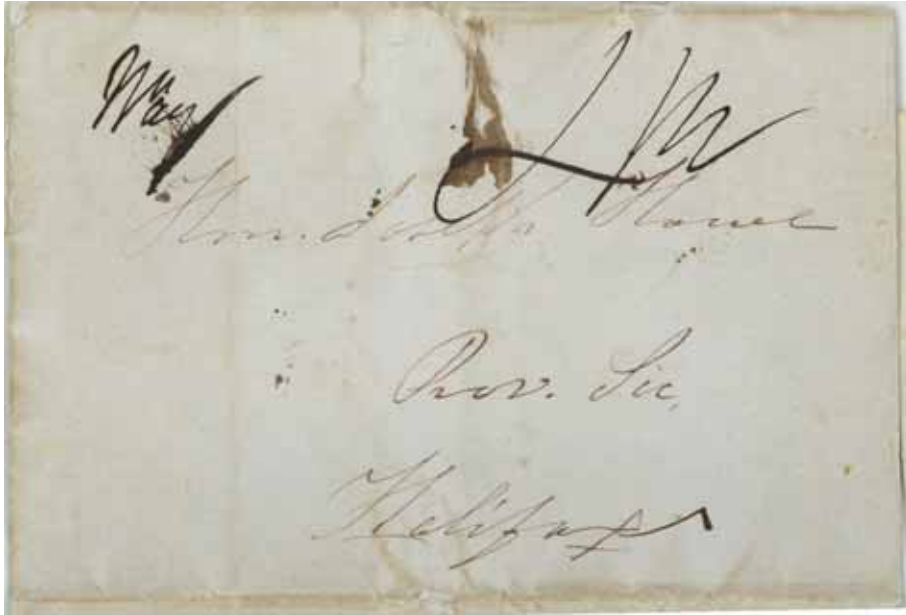 Way
Hon. Joseph Howe
Prov. Sec.
Halifax